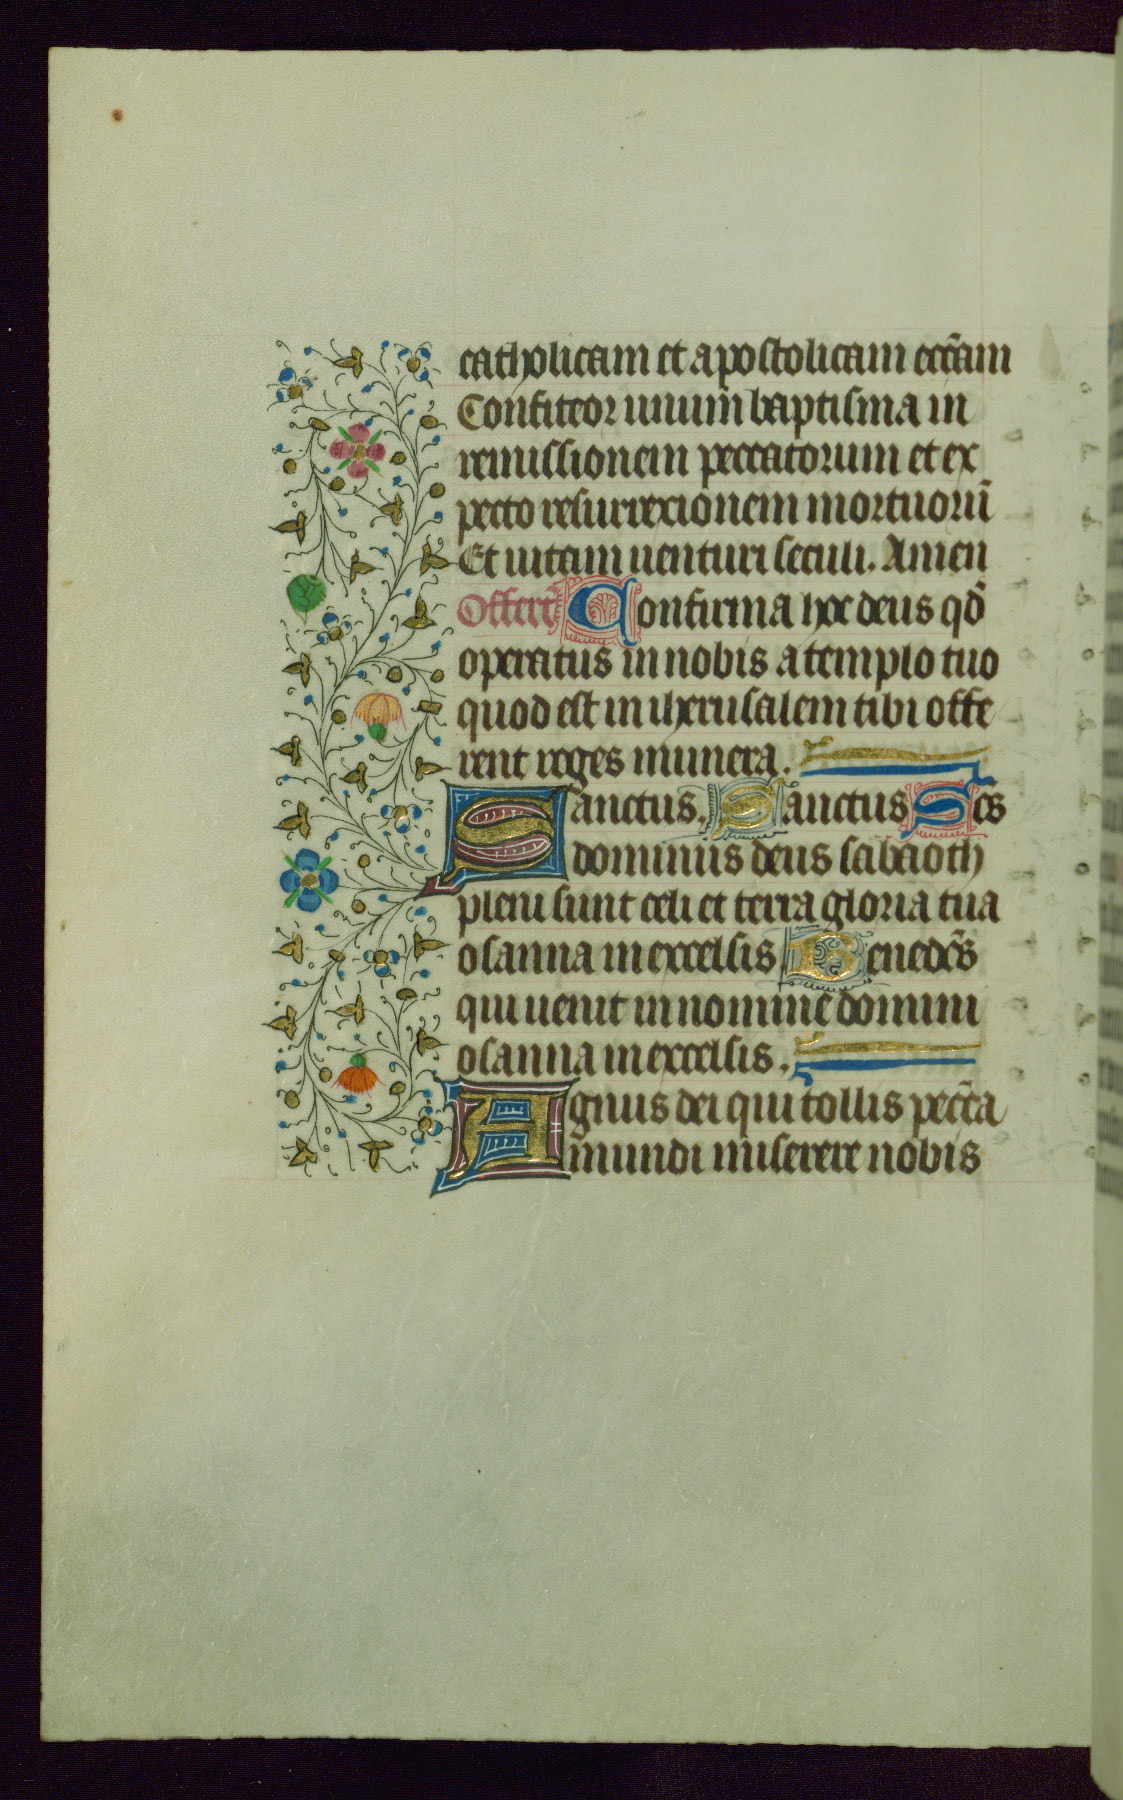 catholicam et apostolicam ecc̄am
Confiteor unum̄ baptisma in
remissionem peccatorum et ex
pecto resurrexionem mortuorū
Et uitam uenturi seculi. Amen
Offert̄ Confirma hoc deus qd̄
operatus in nobis a templo tuo
quod est in iherusalem tibi offe
rent reges munera.
Sanctus. Sanctus Sc̄s
dominus deus sabaoth
pleni sunt celi et terra gloria tua
osanna in excelsis Benedc̄s
qui uenit in nomine domini
osanna in excelsis.
Agnus dei qui tollis pecc̄a
mundi miserere nobis